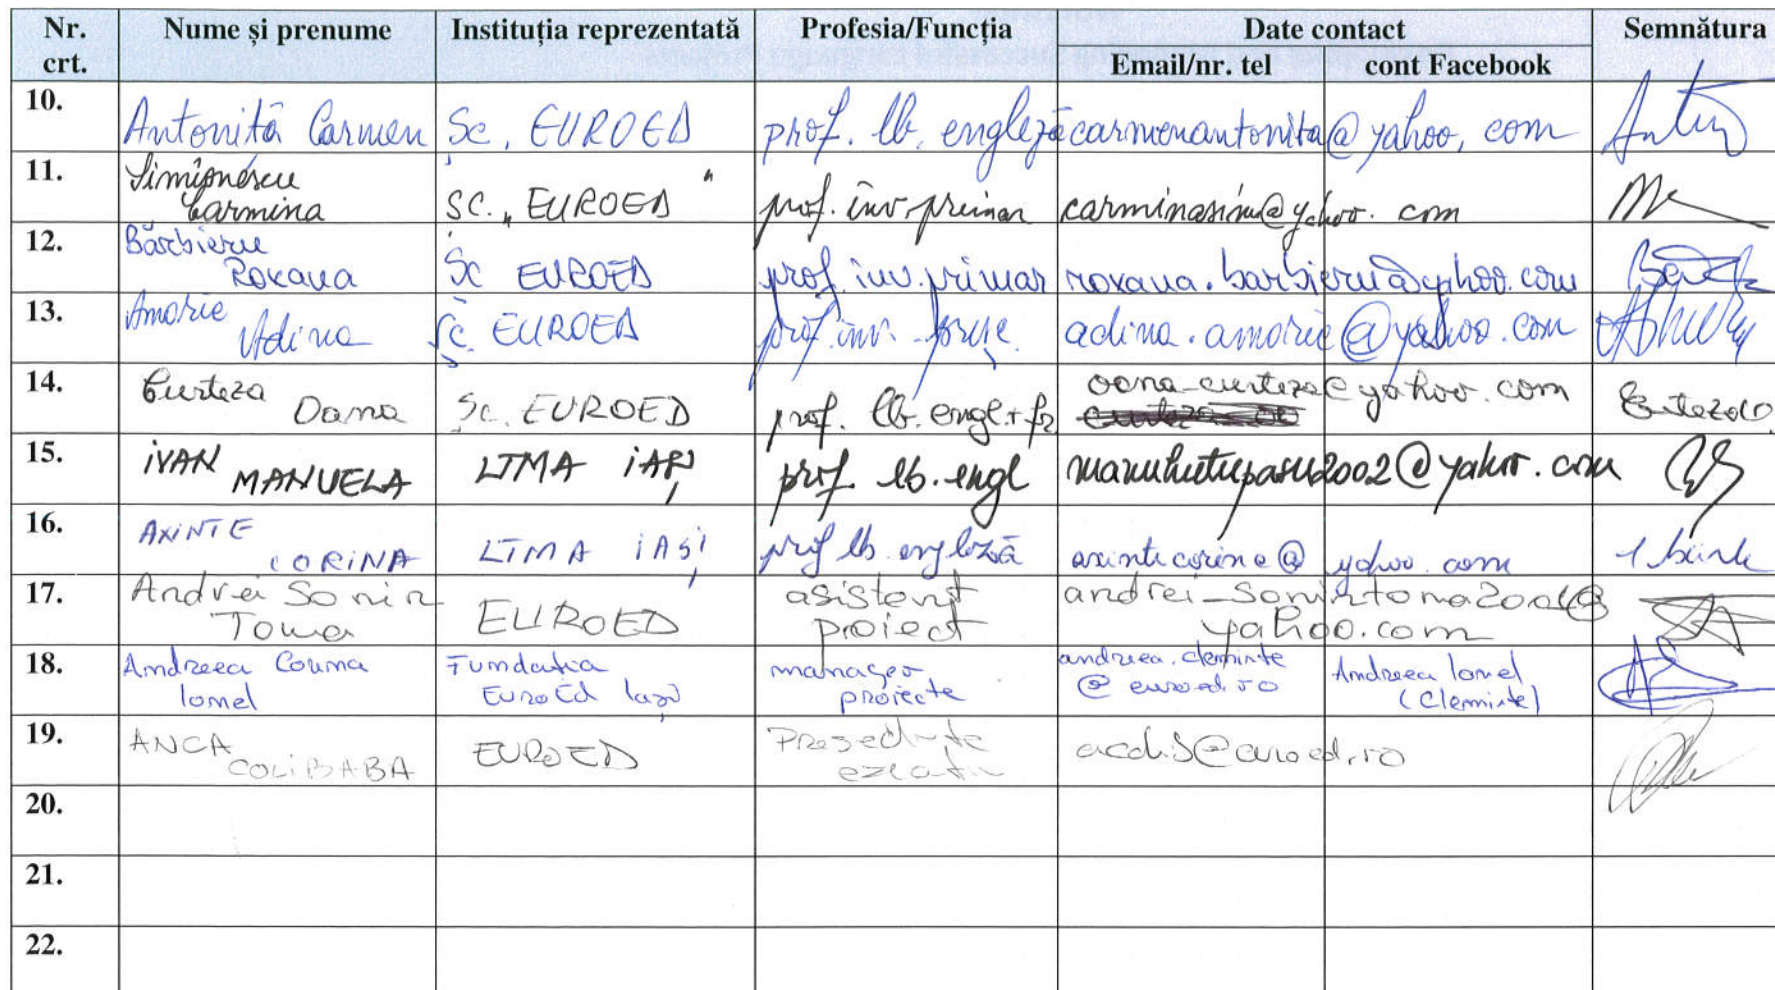 Nr. crt. Nume și prenume Instituția reprezentată Profesia/Funcția Date contact Semnătura
Email/nr. tel cont Facebook
10. Antonită Carmen Șc. EUROED prof. lb. engleză carmenantonita@yahoo.com
11. Simionescu Carmina ȘC. „EUROED" prof. înv. primar carminasim@yahoo.com
12. Bărbieru Roxana Șc EUROED prof. înv. primar roxana.barbieru@yahoo.com
13. Amarie Adina Șc. EUROED prof. înv. adina.amarie@yahoo.com
14. Curteza Oana Șc. EUROED prof. lb. engl.+fr oana_curteza@yahoo.com
15. IVAN MANUELA LTMA IAȘI prof. lb. engl @yahoo.com
16. AXINTE CORINA LTMA IAȘI prof lb. engleză axintecorina@yahoo.com
17. Andrei Sorin Toma EUROED asistent proiect
yahoo.com
18. Andreea Couma Ionel Fundatia EuroEd Iași manager proiecte andreea.cleminte @euroed.ro Andreea Ionel (Cleminte)
19. ANCA COLIBABA EUROED Președinte executiv @euroed.ro
20.
21.
22.